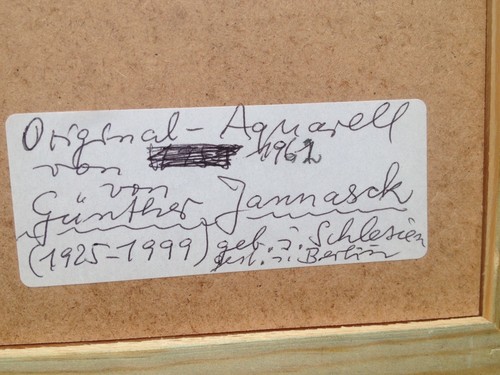 Original-Aquarell
von 1962
von
Günther Jannasck
(1925-1999) geb. i. Schlesien
gest. i. Berlin